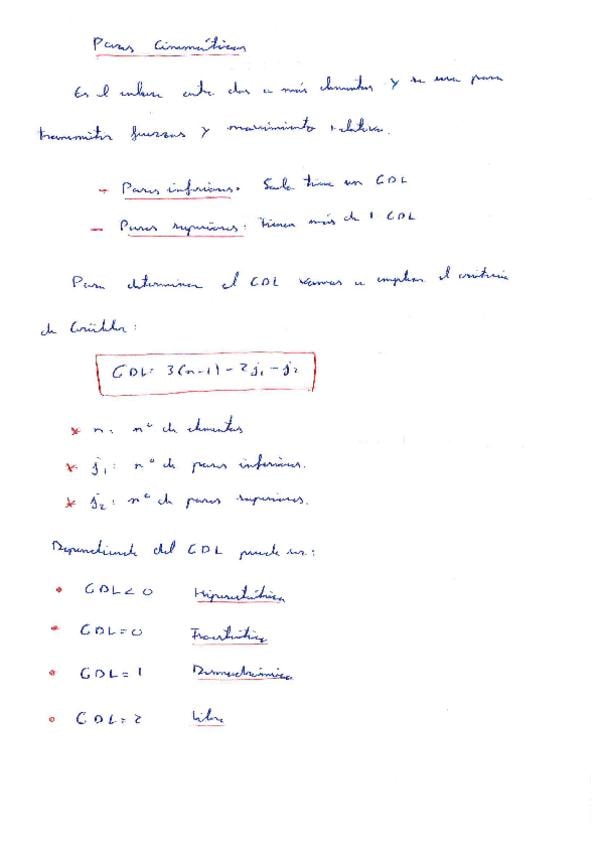 Pares Cinemáticos
Es el enlace entre dos o más elementos y se usa para
transmitir fuerzas y movimiento relativo.
→ Pares inferiores: Solo tiene un GDL
— Pares superiores: tienen más de 1 GDL
Para determinar el GDL vamos a emplear el criterio
de Grübler:
GDL: 3(n-1) - 2j₁ - j₂
* n: nº de elementos
* j₁: nº de pares inferiores.
* j₂: nº de pares superiores.
Dependiendo del GDL puede ser:
• GDL<0 Hiperestático
• GDL=0 Isostático
• GDL=1
• GDL=2 Libre